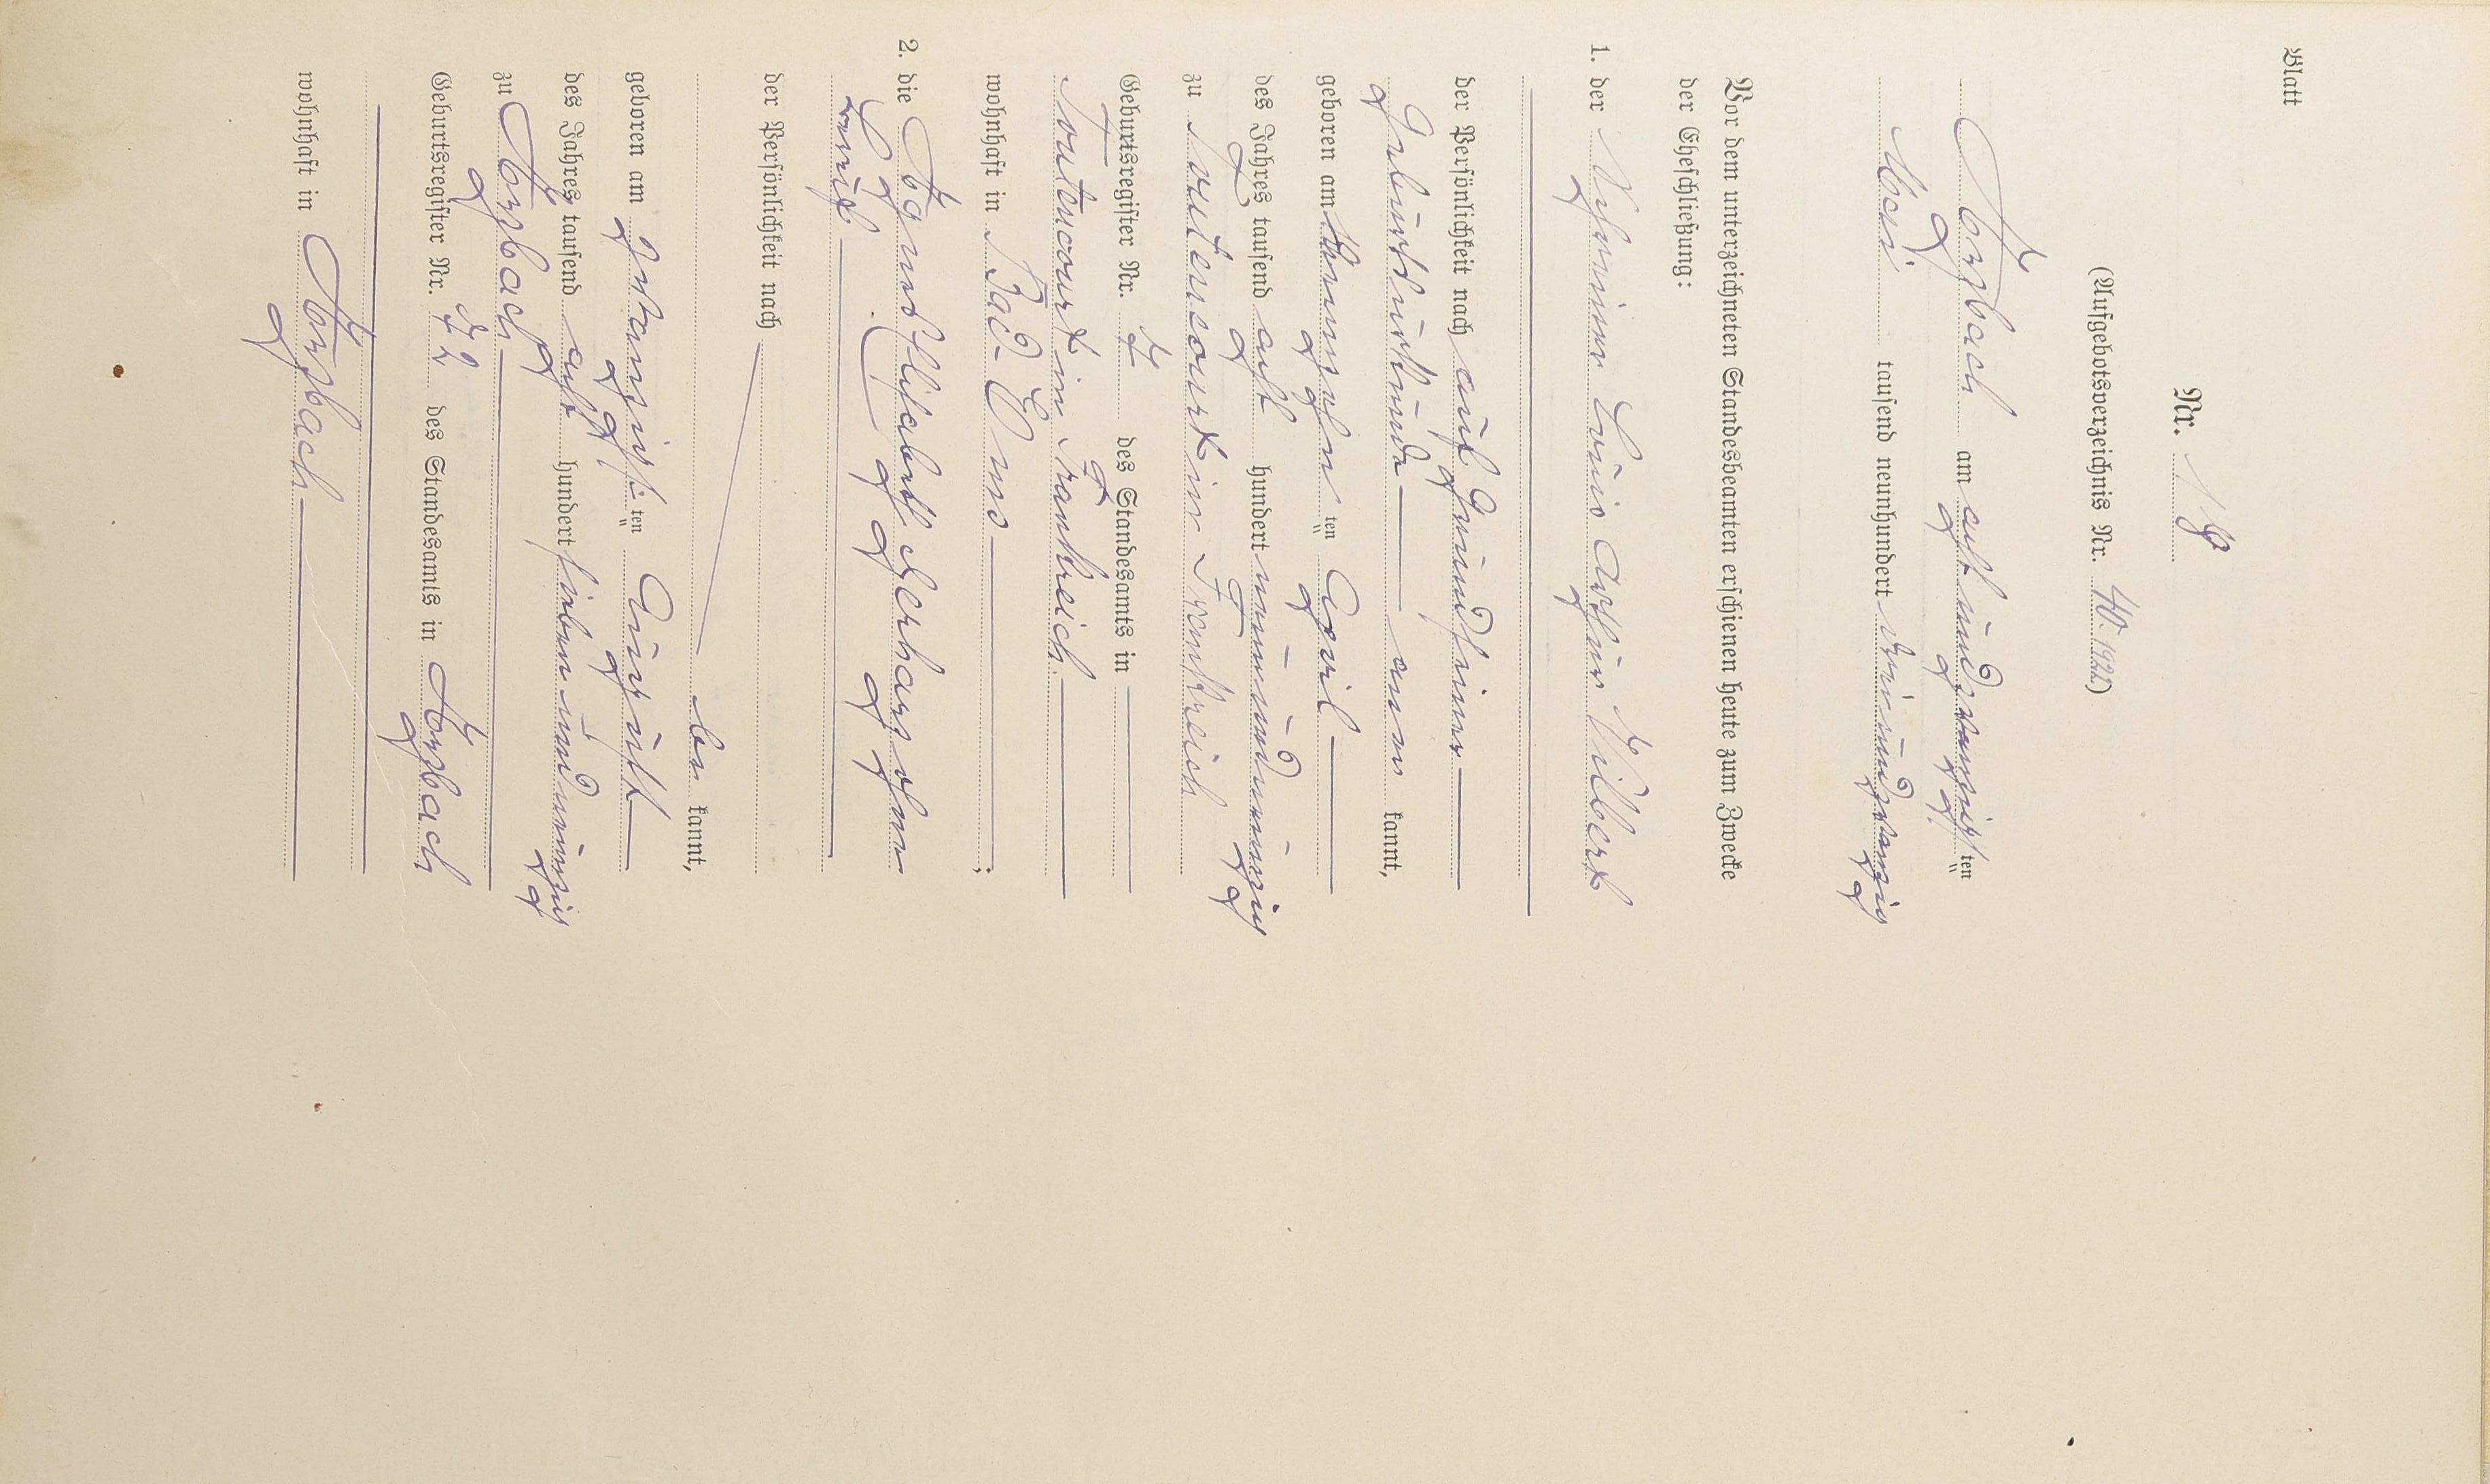 Blatt
Nr. 18
(Aufgebotsverzeichnis Nr. 40.1921)
Arzbach am acht und zwanzigsten
Mai tausend neunhundert und zwanzig
Vor dem unterzeichneten Standesbeamten erschienen heute zum Zwecke
der Eheschließung:
1. der Schreiner Louis Arthur
der Persönlichkeit nach auf Grund seiner
Geburtsurkunde aner kannt,
geboren am neunzehn ten April
des Jahres tausend acht hundert neun und neunzig
zu Toutencourt in Frankreich
Geburtsregister Nr. des Standesamts in
Toutencourt in Frankreich
wohnhaft in Bad-Ems ;
2. die Agnes Elisabeth Gerharz ohne
Beruf.
der Persönlichkeit nach
be kannt,
geboren am zwanzigs ten August
des Jahres tausend acht hundert sieben und neunzig
zu Arzbach
Geburtsregister Nr. des Standesamts in Arzbach
wohnhaft in Arzbach